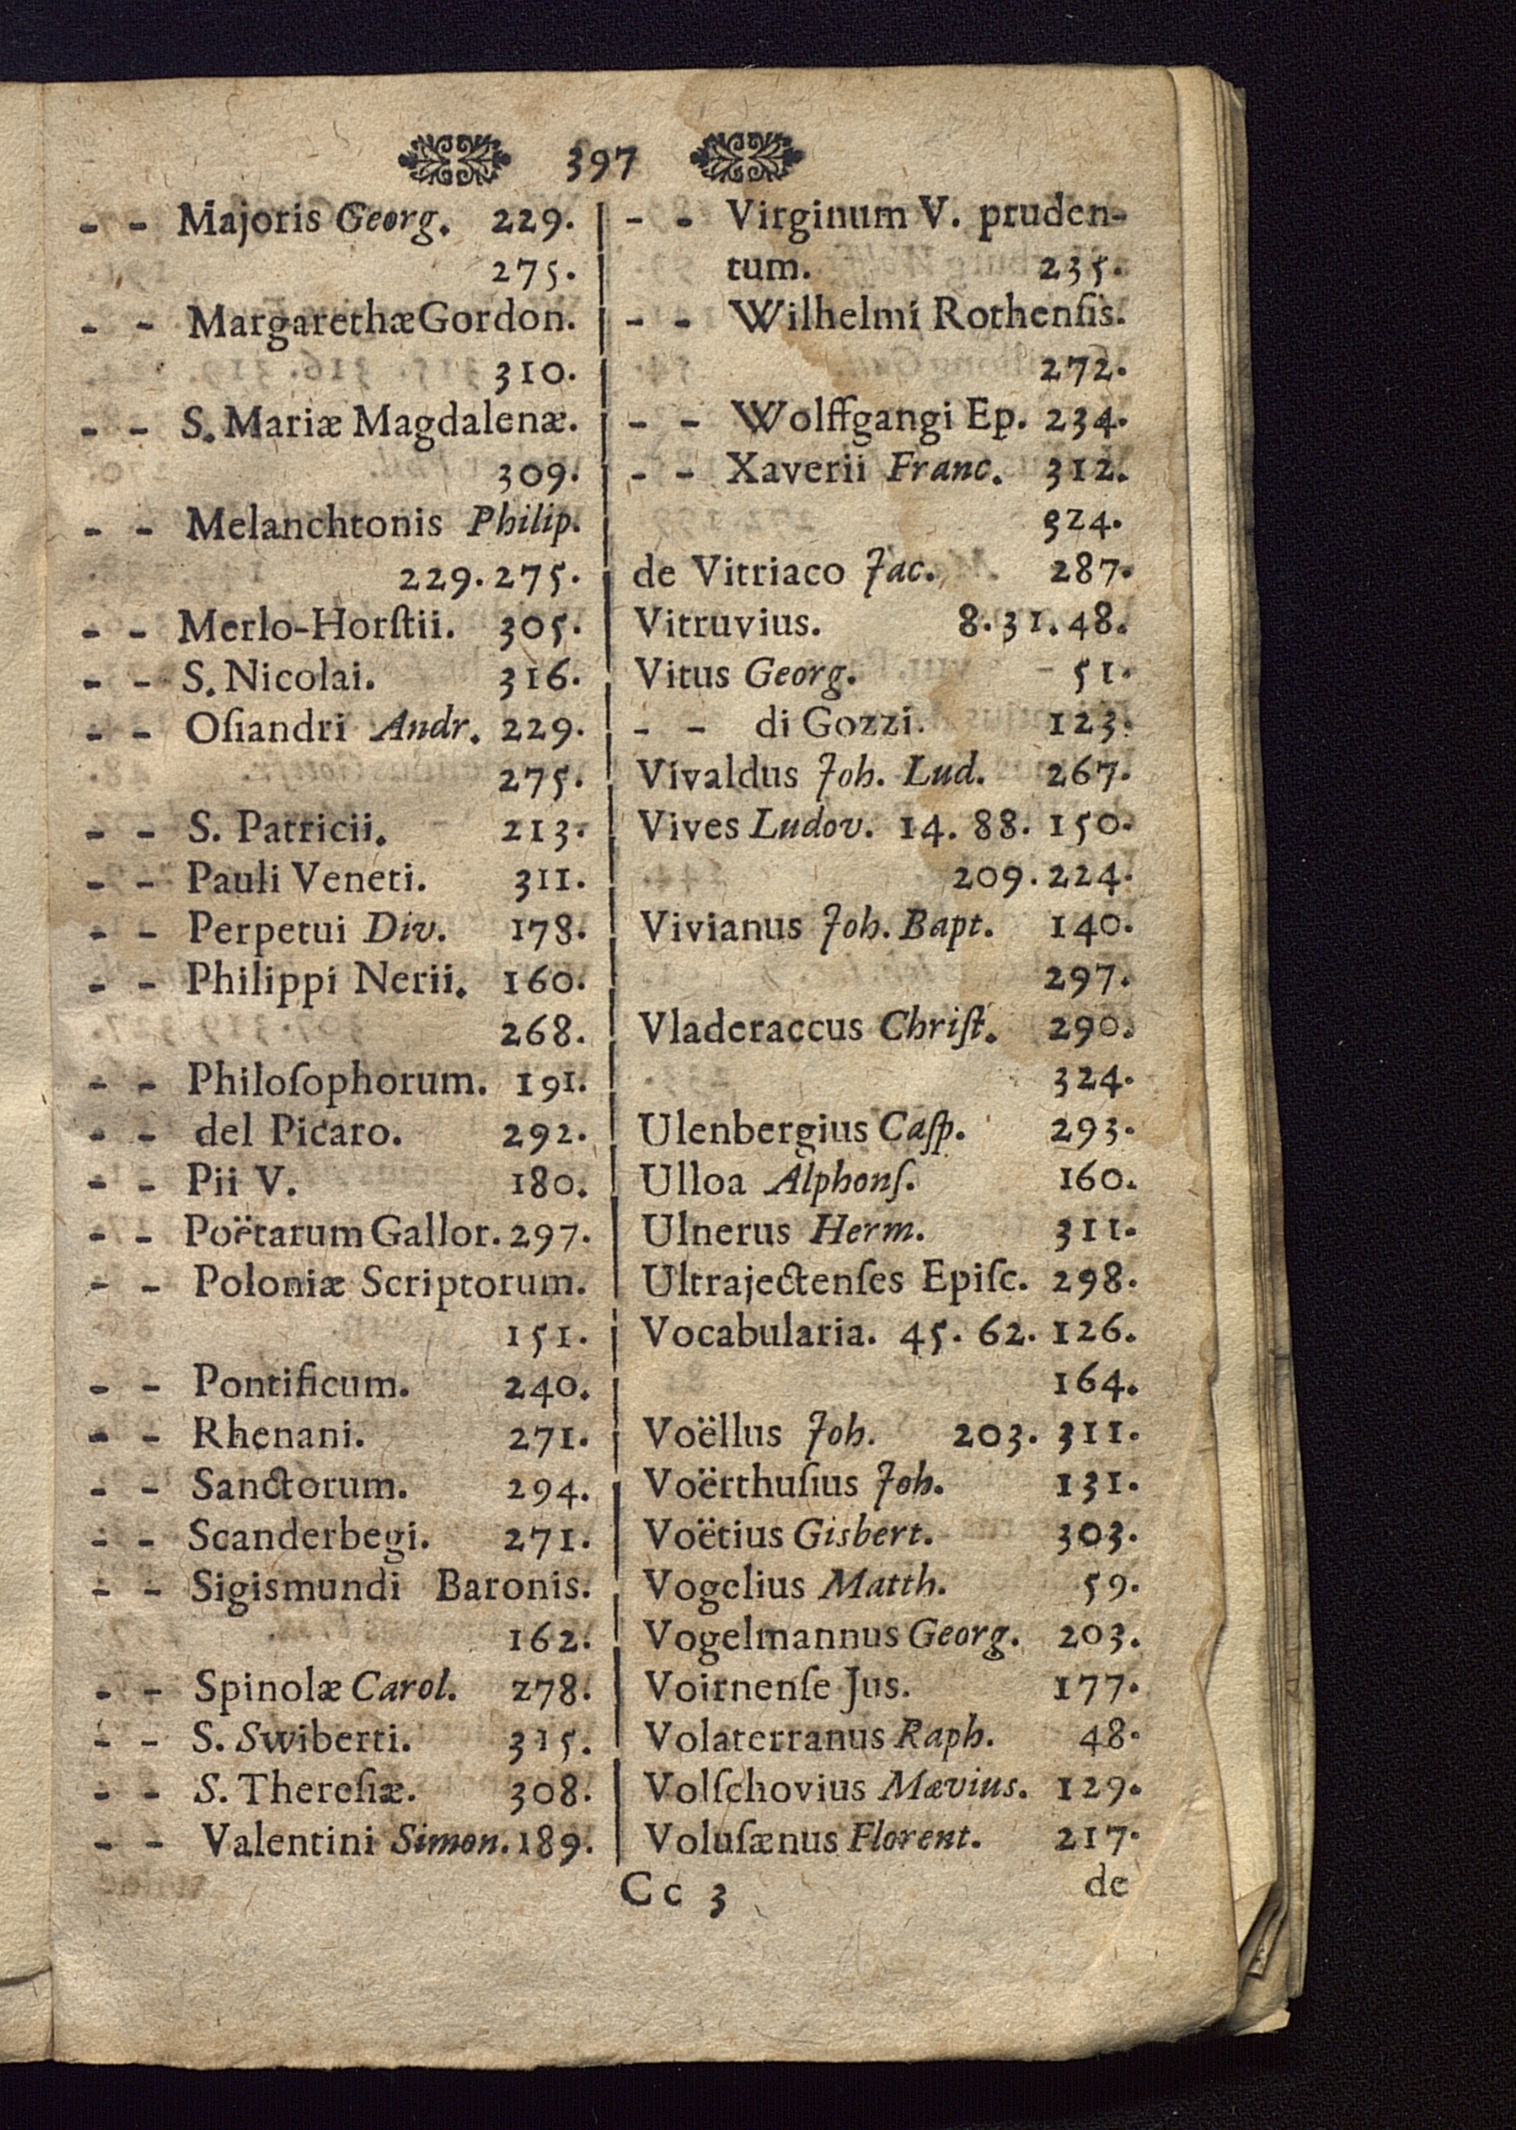 397
- - Majoris Georg. 229.
275.
- - MargarethæGordon.
310.
- - S. Mariæ Magdalenæ.
309.
- - Melanchtonis Philip.
229. 275.
- - Merlo-Horſtii. 305.
- - S. Nicolai. 316.
- - Oſiandri Andr. 229.
275.
- - S. Patricii. 213.
- - Pauli Veneti. 311.
- - Perpetui Div. 178.
- - Philippi Nerii. 160.
268.
- - Philoſophorum. 191.
- - del Picaro. 292.
- - Pii V. 180.
- - Poëtarum Gallor. 297.
- - Poloniæ Scriptorum.
151.
- - Pontificum. 240.
- - Rhenani. 271.
- - Sanctorum. 294.
- - Scanderbegi. 271.
- - Sigismundi Baronis.
162.
- - Spinolæ Carol. 278.
- - S. Swiberti. 315.
- - S. Thereſiæ. 308.
- - Valentini Simon. 189.
- - Virginum V. pruden-
tum. 235.
- - Wilhelmi Rothenſis.
272.
- - Wolffgangi Ep. 234.
- - Xaverii Franc. 312.
324.
de Vitriaco Jac. 287.
Vitruvius. 8. 31. 48.
Vitus Georg. 51.
- - di Gozzi. 123.
Vivaldus Joh. Lud. 267.
Vives Ludov. 14. 88. 150.
209. 224.
Vivianus Joh. Bapt. 140.
297.
Vladeraccus Chriſt. 290.
324.
Ulenbergius Caſp. 293.
Ulloa Alphonſ. 160.
Ulnerus Herm. 311.
Ultrajectenſes Epiſc. 298.
Vocabularia. 45. 62. 126.
164.
Voëllus Joh. 203. 311.
Voërthuſius Joh. 131.
Voëtius Gisbert. 303.
Vogelius Matth. 59.
Vogelmannus Georg. 203.
Voitnenſe Jus. 177.
Volaterranus Raph. 48.
Volſchovius Mævius. 129.
Voluſænus Florent. 217.
Cc 3
de